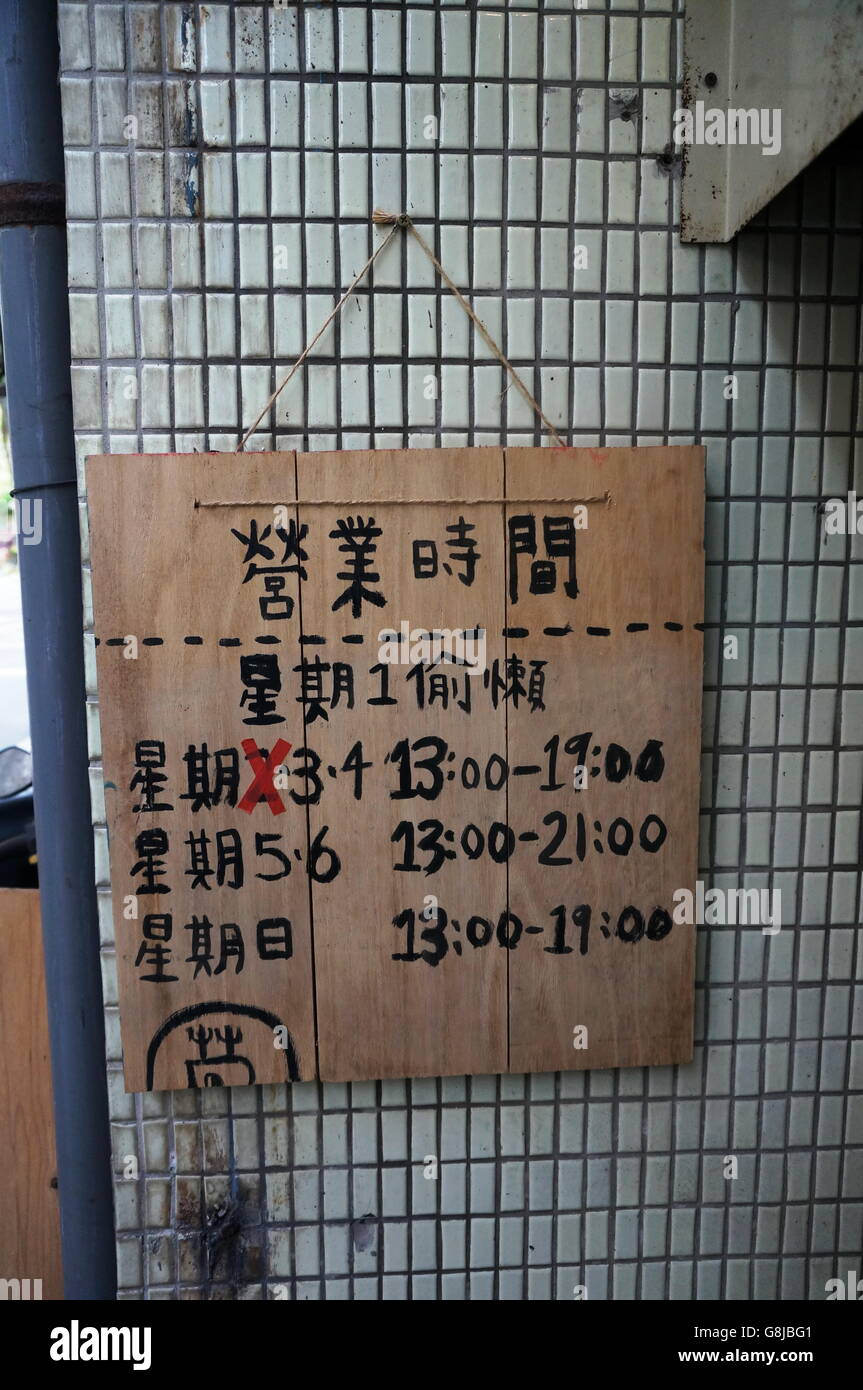 營業時間
星期1偷懶
星期 3·4 13:00-19:00
星期5·6 13:00-21:00
星期日 13:00-19:00
alamy
alamy
alamy
Image ID: G8JBG1
www.alamy.com